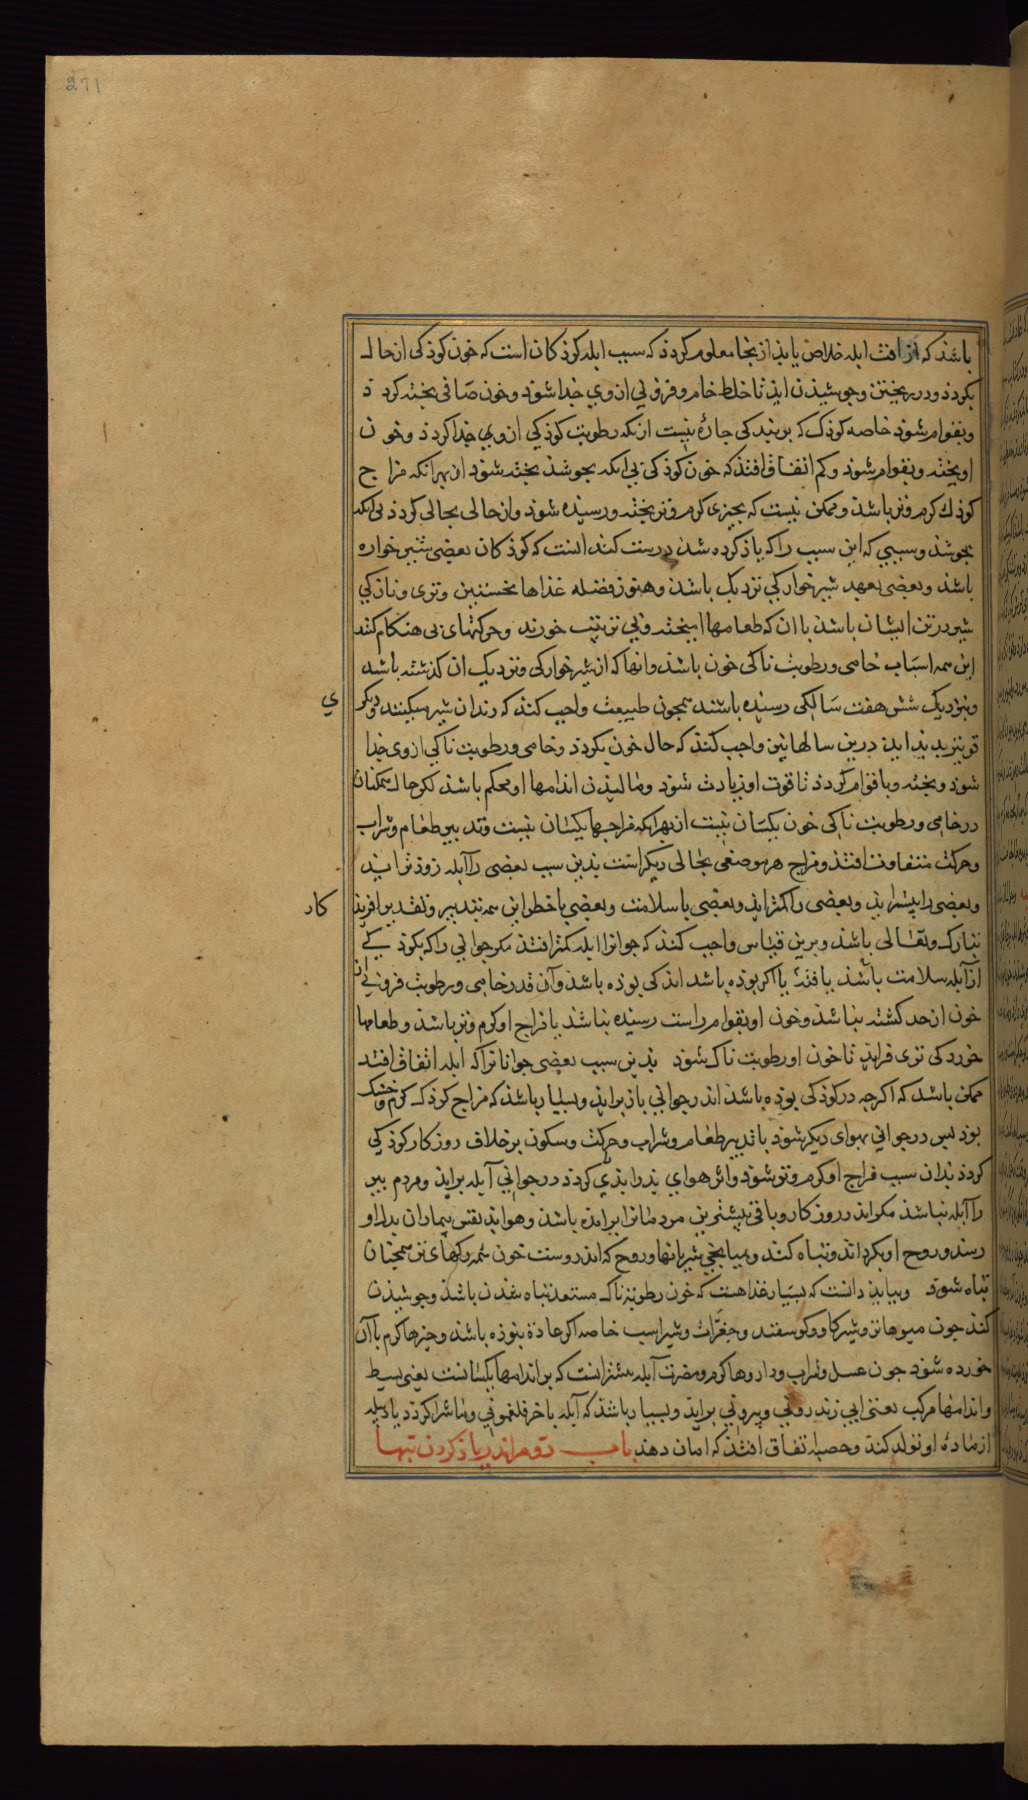 271
باشذ که از افت ابله خلاص یابذ از ینجا معلوم کردذ که سبب ابله کوذکان است که خون کوذکی از حال
بکردذ ودر ریختن وجوشیذن ایذ تا خلط خام وفزونی ازوی جذا شوذ وخون صافی بخته کرد ذ
وبقوام شوذ خاصه کوذک که بر بنیذکی جارهٔ نیست ازنکه رطوبت کوذکی ازوی جذا کردذ وخون
او بخته وبقوام شوذ وکم اتفاق افتذ که خون کوذکی بی انکه بجوشذ بخته شوذ از بهر انکه مزاج
کوذك کرم وتر باشذ وممکن نیست که بجیزی کرم وتر بخته ورسیذه شوذ واز حالی بحالی کردذ بی انکه
بجوشذ وسببی که این سبب را که یاذ کرده شذ درست کند انست که کوذکان بعضی شیر خواره
باشذ وبعضی بعهد شیر خوارکی نزدیك باشذ وهنوز فضله غذاها نخستین وتری ونازکی
شیر در تن ایشان باشذ با ان که طعامها امیخته وبی ترتیب خورند وحرکتهای بی هنکام کنند
این همه اسباب خامی ورطوبت ناکی خون باشذ وانها که از شیر خوارکی ونزدیك ان کذشته باشد
وبنزدیك شش هفت سالکی رسیذه باشند همجون طبیعت واجب کنذ که دندان شیر بیکفند ودیکر
ي
قویتر بدید ایذ درین سالها نیز واجب کنذ که حال خون بکردذ وخامی ورطوبت ناکی ازوی جذا
شوذ وبخته وبا قوام کردذ تا قوت او زیادت شوذ ومالیذن اندامها او محکم باشذ لکن حال همکنان
در خامی ورطوبت ناکی خون یکسان نیست از بهر انکه مزاجها یکسان نیست وتدبیر طعام وشراب
وحرکت متفاوت افتذ ومزاج هر موضعی بحالی دیکر است بدین سبب بعضی را آبله زوذتر ایذ
وبعضی را بیشتر ایذ وبعضی را کمتر ایذ وبعضی با سلامت وبعضی با خطر واین همه بتدبیر وتقدیر افریذ
کار
تبارك وتعالی باشذ وبرین قیاس واجب کنذ که جوانرا ابله کمتر افتذ مکر جوانی را که بکوذکی
از آبله سلامت یافته باشذ یا اکر بوذه باشذ اندکی بوذه باشذ وآن قدر خامی ورطوبت فزونی از
خون ازحد کشته نباشذ وخون او بقوام راست رسیذه نباشذ یا مزاج او کرم وتر باشذ وطعامها
خورد کی تری فزایذ تا خون او رطوبت ناك شوذ بذین سبب بعضی جوانانرا که ابله اتفاق افتد
ممکن باشذ که اکرجه در کوذکی بوذه باشذ اندر جوانی باز برایذ وبسیار باشذ که مزاج کوذک کرم وخشك
بوذ بس در جوانی بهوای دیکر شوذ یا تدبیر طعام وشراب وحرکت وسکون بر خلاف روزکار کوذکی
کردذ بدان سبب مزاج او کرم وتر شوذ واثر هوای بذیرای کردذ در جوانی آبله برایذ ومردم بیر
را آبله نباشذ مکر اندر روزکار وبائی بیشترین مردمانرا برایذه باشذ وهوایذ نفس بیماران بدل او
رسذ وروح او بکرداند وتباه کند وبمیانجی شریانها وروح که اندروست خون همه رکهای تن همجنان
تباه شوذ وببایذ دانست که بسیار غذا هست که خون رطوبت ناک مستعد تباه شذن باشذ وجوشیذن
کنذ جون میوهاتر وشیر کاو وکوسفند وجغرات وشیر اسب خاصه اکر عاذة نبوذه باشذ وجیزها کرم با آن
خورده شوذ جون عسل وشراب وداروها کرم ومضرت آبله بیشتر انست که بر اندامها یکسانست یعنی بسیط
واندامها مرکب یعنی ابی زنذ درونی وبیرونی برایذ وبسیار باشذ که آبله باخر فلغمونی وماشرا کردذ یا دبیله
از مادهٔ او تولد کند وحصبه اتفاق افتذ که امان دهند باب دوم اندر یاذ کردن تبها